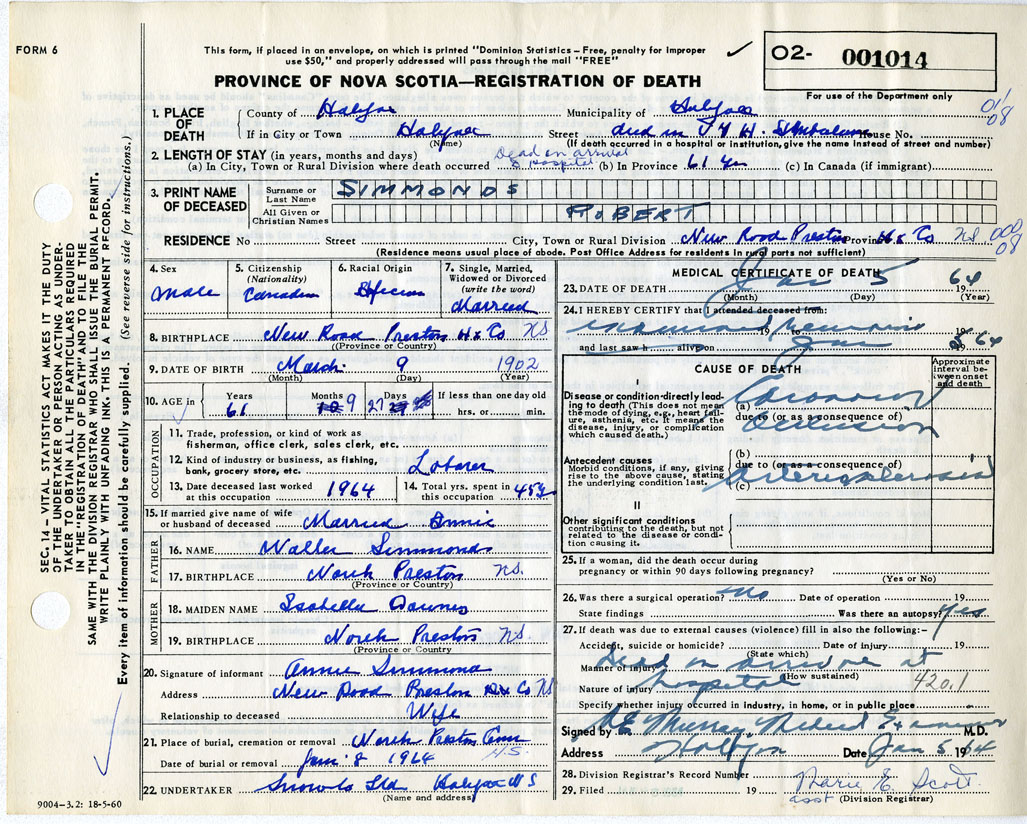 FORM 6
This form, if placed in an envelope, on which is printed "Dominion Statistics – Free, penalty for improper
use $50," and properly addressed will pass through the mail "FREE"
✓
O2- 001014
For use of the Department only
PROVINCE OF NOVA SCOTIA—REGISTRATION OF DEATH
01/08
1. PLACE OF DEATH County of Halifax Municipality of Halifax
If in City or Town Halifax (Name) Street died in V G H House No.
(If death occurred in a hospital or institution, give the name instead of street and number)
2. LENGTH OF STAY (in years, months and days) Dead on arrival
(a) In City, Town or Rural Division where death occurred Hospital (b) In Province 61 Yrs (c) In Canada (if immigrant)
3. PRINT NAME OF DECEASED Surname or Last Name SIMMONDS
All Given or Christian Names ROBERT
RESIDENCE No Street City, Town or Rural Division New Road Preston Province Hx Co NS 000/08
(Residence means usual place of abode. Post Office Address for residents in rural parts not sufficient)
4. Sex Male
5. Citizenship (Nationality) Canadian
6. Racial Origin African
7. Single, Married, Widowed or Divorced (write the word) Married
8. BIRTHPLACE New Road Preston Hx Co NS
(Province or Country)
9. DATE OF BIRTH March 9 1902
(Month) (Day) (Year)
10. AGE in Years 61 Months 9 Days 27 If less than one day old hrs. or min.
OCCUPATION
11. Trade, profession, or kind of work as fisherman, office clerk, sales clerk, etc.
12. Kind of industry or business, as fishing, bank, grocery store, etc. Laborer
13. Date deceased last worked at this occupation 1964 14. Total yrs. spent in this occupation 45 yrs
15. If married give name of wife or husband of deceased Married Annie
FATHER
16. NAME Walter Simmonds
17. BIRTHPLACE North Preston NS.
(Province or Country)
MOTHER
18. MAIDEN NAME Isabella Downey
19. BIRTHPLACE North Preston NS.
(Province or Country)
20. Signature of informant Annie Simmonds
Address New Road Preston Hx Co NS
Relationship to deceased Wife
21. Place of burial, cremation or removal North Preston Cem
NS
Date of burial or removal Jan. 8 1964
22. UNDERTAKER Snows Ltd Halifax NS
(Name and address)
9004–3.2: 18-5-60
MEDICAL CERTIFICATE OF DEATH
23. DATE OF DEATH Jan 5 1964
(Month) (Day) (Year)
24. I HEREBY CERTIFY that I attended deceased from:
examined remains 19
and last saw h alive on Jan 5 1964
CAUSE OF DEATH
Approximate interval between onset and death
I
Disease or condition directly leading to death (This does not mean the mode of dying, e.g., heart failure, asthenia, etc. It means the disease, injury, or complication which caused death.)
(a) Coronary
due to (or as a consequence of)
Occlusion
Antecedent causes
Morbid conditions, if any, giving rise to the above cause, stating the underlying condition last.
(b)
due to (or as a consequence of)
Arteriosclerosis
(c)
II
Other significant conditions contributing to the death, but not related to the disease or condition causing it.
25. If a woman, did the death occur during pregnancy or within 90 days following pregnancy? (Yes or No)
26. Was there a surgical operation? No Date of operation 19
State findings Was there an autopsy? Yes
27. If death was due to external causes (violence) fill in also the following:–
Accident, suicide or homicide? Date of injury 19
(State which)
Manner of injury Dead on arrival at
(How sustained)
Nature of injury hospital 420.1
Specify whether injury occurred in industry, in home, or in public place
Signed by Murray Medical Examiner M.D.
Address Halifax Date Jan 5 1964
28. Division Registrar's Record Number
29. Filed 19 Marie E. Scott
asst (Division Registrar)
SEC. 14 – VITAL STATISTICS ACT MAKES IT THE DUTY
OF THE UNDERTAKER OR PERSON ACTING AS UNDER-
TAKER TO OBTAIN ALL THE PARTICULARS REQUIRED
IN THE "REGISTRATION OF DEATH" AND TO FILE THE
SAME WITH THE DIVISION REGISTRAR WHO SHALL ISSUE THE BURIAL PERMIT.
WRITE PLAINLY WITH UNFADING INK. THIS IS A PERMANENT RECORD.
Every item of information should be carefully supplied. (See reverse side for instructions.)